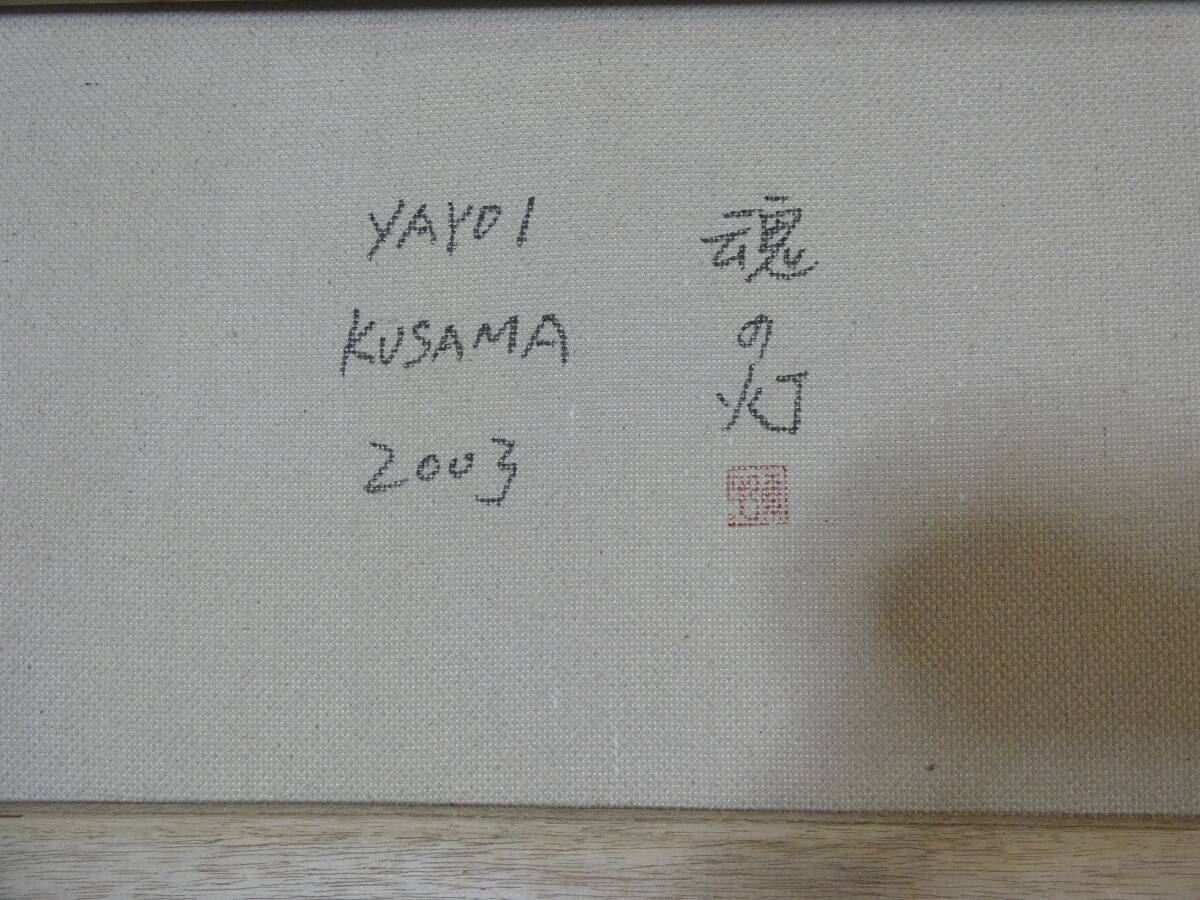 YAYOI
KUSAMA
2003
魂の灯